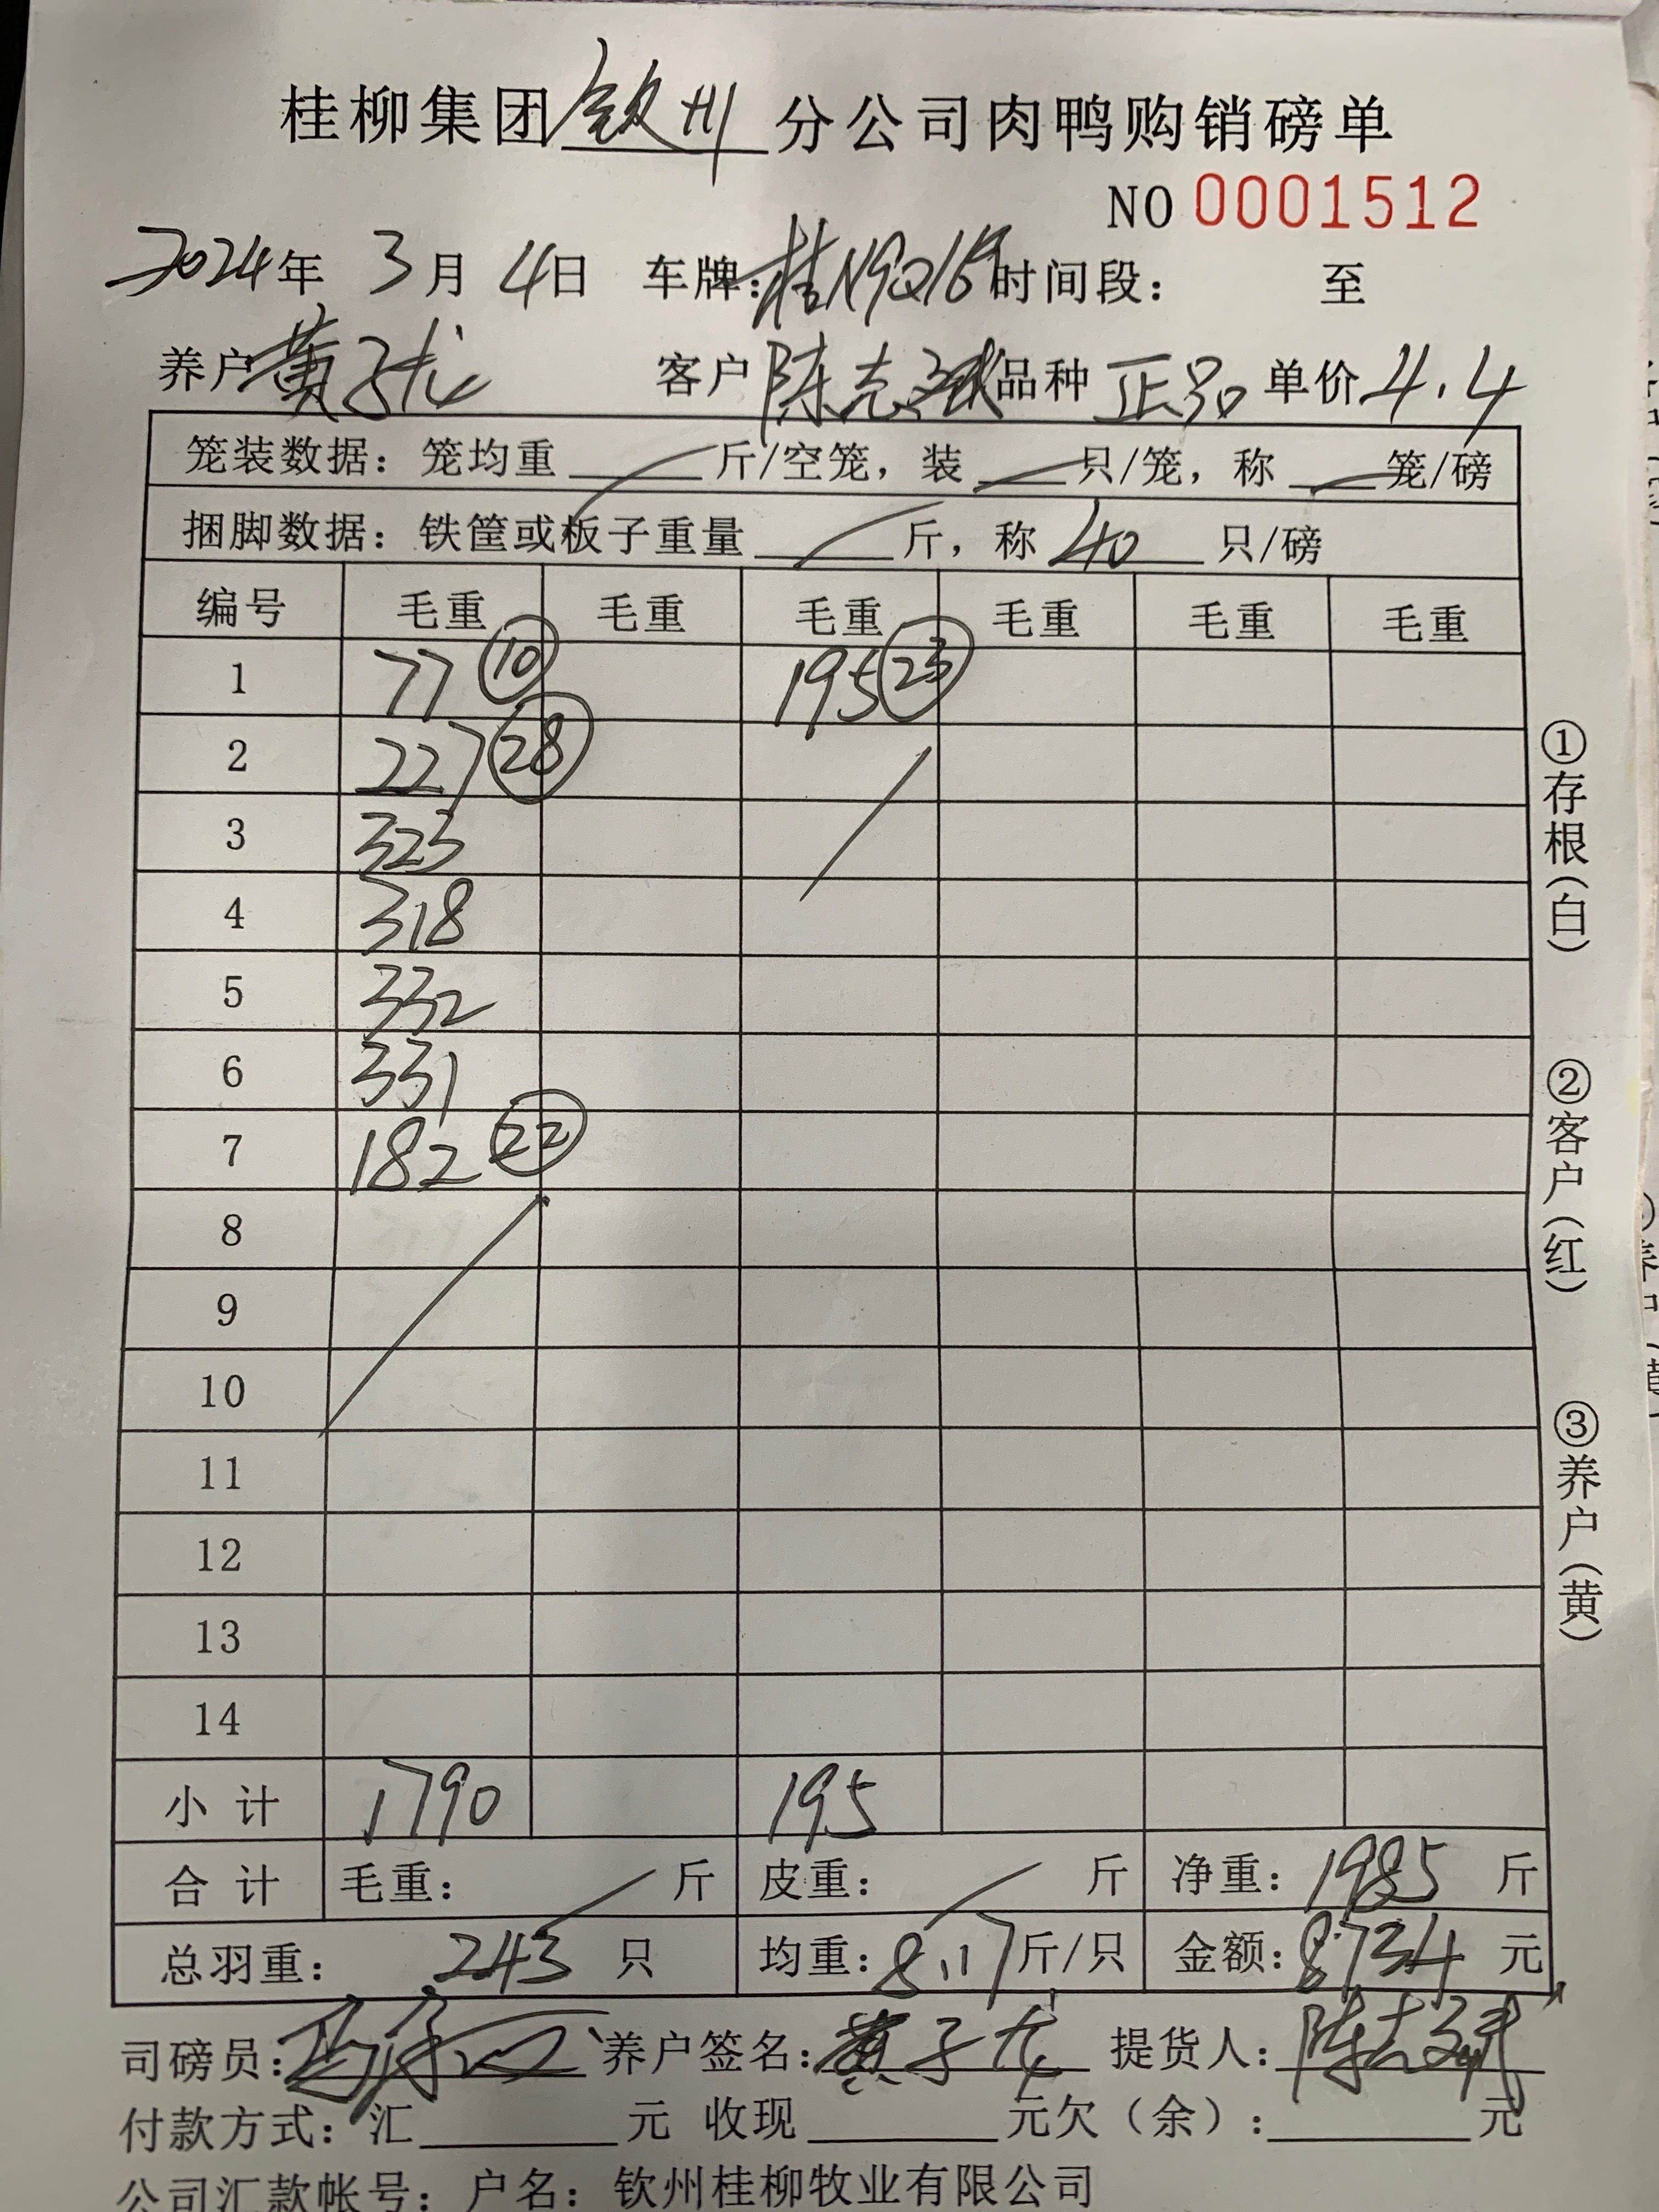 桂柳集团钦州分公司肉鸭购销磅单
NO 0001512
2024年 3月 4日 车牌：桂N9Q165时间段： 至
养户黄子龙 客户陈志斌品种 正品 单价4.4
笼装数据：笼均重 斤/空笼，装 只/笼，称 笼/磅
捆脚数据：铁筐或板子重量 斤，称 40 只/磅
编号 毛重 毛重 毛重 毛重 毛重 毛重
1 77 ⑩ 195 (23)
2 227 (28)
3 323
4 318
5 332
6 331
7 182 (22)
8
9
10
11
12
13
14
小计 1790 195
合计 毛重： 斤 皮重： 斤 净重：1985 斤
总羽重： 243 只 均重：8.17斤/只 金额：8734 元
司磅员： 养户签名：黄子龙 提货人：陈志斌
付款方式：汇 元 收现 元欠（余）： 元
公司汇款帐号：户名：钦州桂柳牧业有限公司
①存根（白）
②客户（红）
③养户（黄）